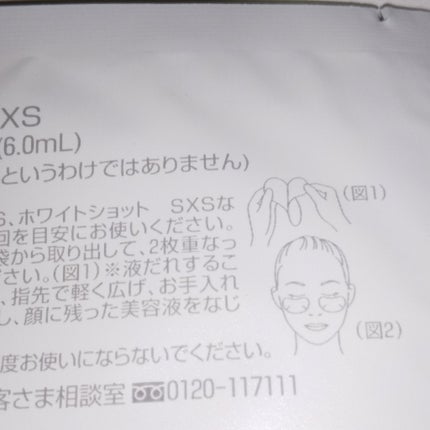 XS
(6.0mL)
というわけではありません)
6、ホワイトショット SXSな
回を目安にお使いください。
袋から取り出して、2枚重なっ
ださい。(図1)※液だれするこ
、指先で軽く広げ、お手入れ
し、顔に残った美容液をなじ
度お使いにならないでください。
客さま相談室 0120-117111
(図1)
(図2)